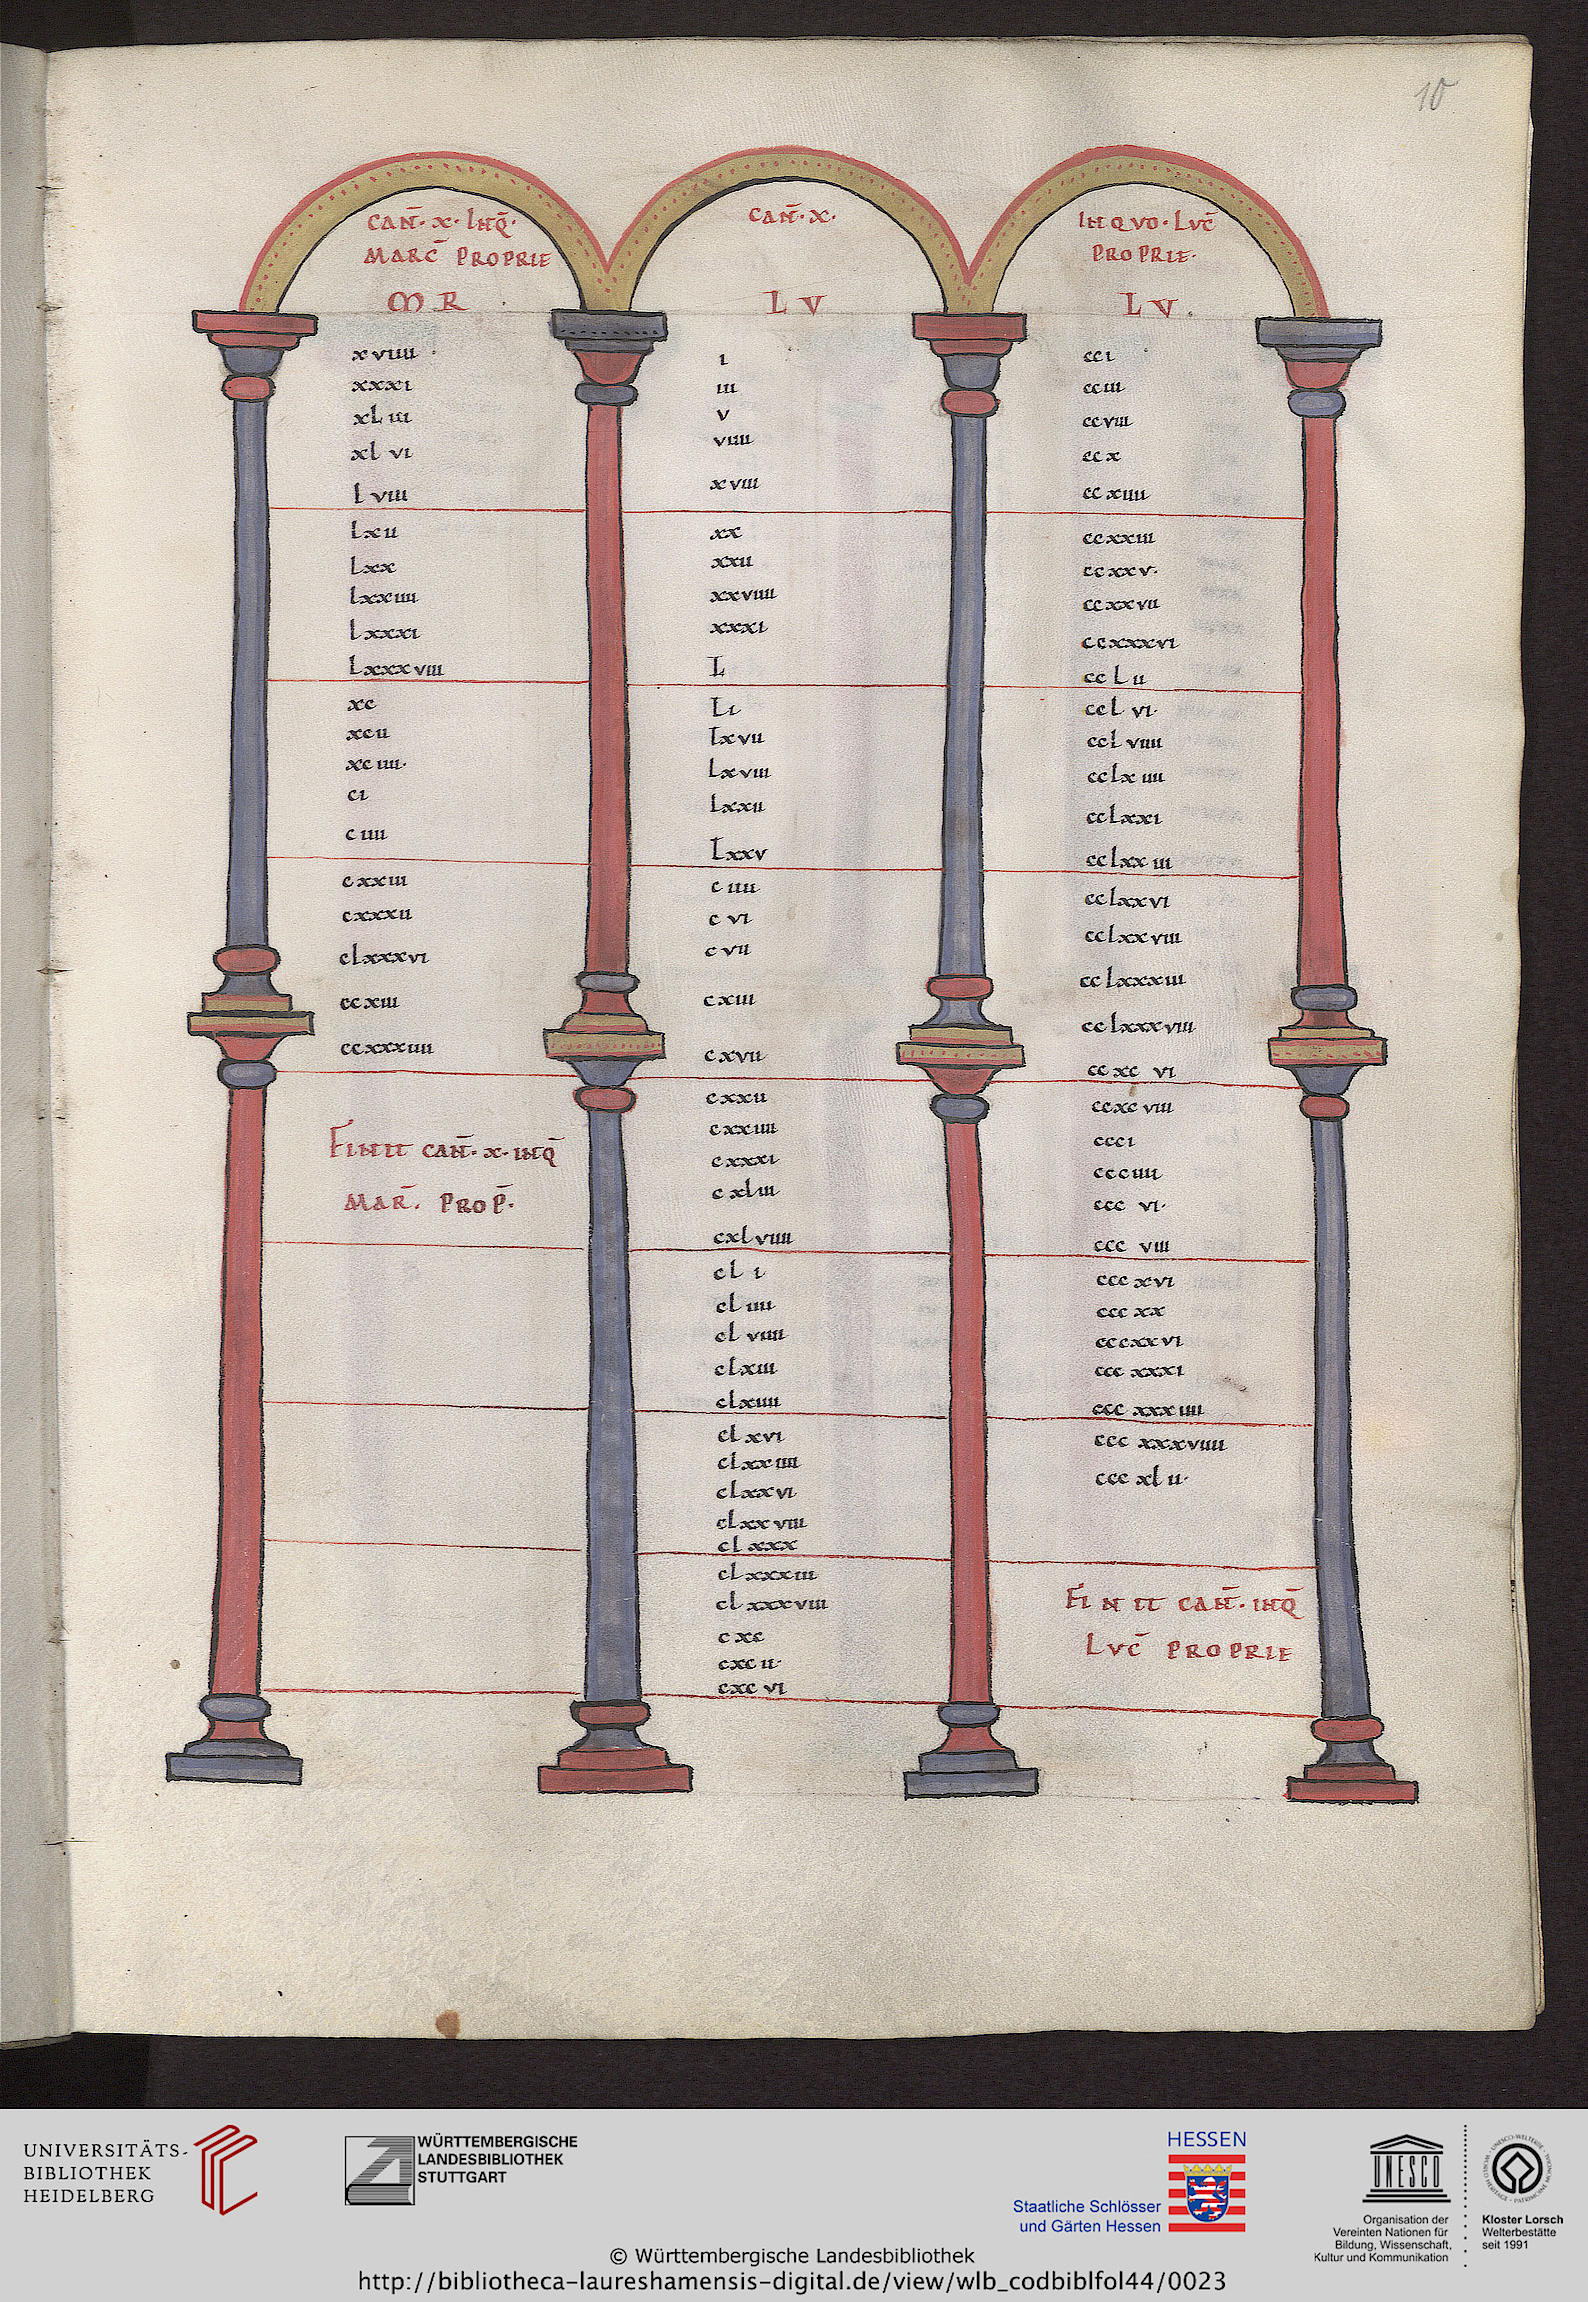 10
CAN̄·X·INQ̄·
MARC̄ PROPRIE
MR
xviiii
xxxi
xLiii
xl vi
Lviii
Lxii
Lxx
lxxiiii
Lxxxi
Lxxxviii
xc
xcii
xciiii·
ci
ciiii
cxxiii
cxxxii
clxxxvi
ccxiii
ccxxxiiii
FINIT CAN̄·X·INQ̄
MAR̄. PROP̄·
CAN̄·X·
LV
i
iii
v
viiii
xviii
xx
xxii
xxviiii
xxxi
L
Li
Lxvii
Lxviii
Lxxii
Lxxv
ciiii
cvi
cvii
cxiii
cxvii
cxxii
cxxiiii
cxxxi
cxliii
cxlviiii
cl i
cl iiii
cl viiii
clxiii
clxiiii
clxvi
clxxiiii
clxxvi
clxxviii
clxxx
clxxxiii
clxxxviii
cxc
cxcii·
cxcvi
INQVO·LVC̄
PROPRIE·
LV.
cci
cciii
ccviii
ccx
ccxiiii
ccxxiii
ccxxv·
ccxxvii
ccxxxvi
ccLii
ccL vi·
ccl viiii
cclxiiii
cclxxi
cclxxiii
cclxxvi
cclxxviii
cclxxxiii
cclxxxviii
ccxc vi
ccxcviii
ccci
ccciiii
ccc vi·
ccc viii
cccxvi
cccxx
cccxxvi
ccc xxxi
ccc xxxiiii
ccc xxxviiii
cccxlii·
FINIT CAN̄·INQ̄
LVC̄ PROPRIE
UNIVERSITÄTS-
BIBLIOTHEK
HEIDELBERG
WÜRTTEMBERGISCHE
LANDESBIBLIOTHEK
STUTTGART
HESSEN
Staatliche Schlösser
und Gärten Hessen
UNESCO
Organisation der
Vereinten Nationen für
Bildung, Wissenschaft,
Kultur und Kommunikation
Kloster Lorsch
Welterbestätte
seit 1991
© Württembergische Landesbibliothek
http://bibliotheca-laureshamensis-digital.de/view/wlb_codbiblfol44/0023